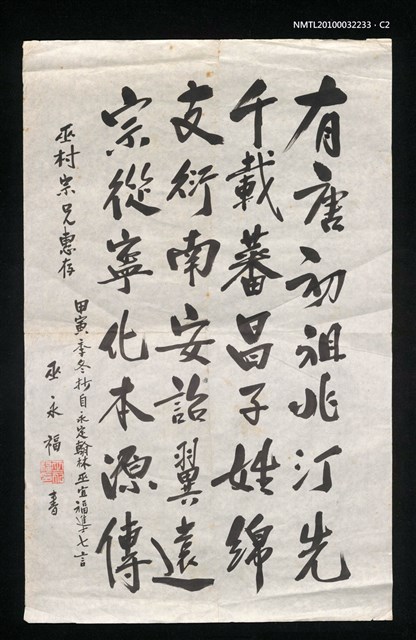 NMTL20100032233・C2
有唐初祖兆汀先
千載蕃昌子姓綿
支衍南安詒翼遠
宗從寧化本源傳
巫村宗兄惠存
甲寅季冬抄自永定翰林巫宜福進士七言
巫永福 書